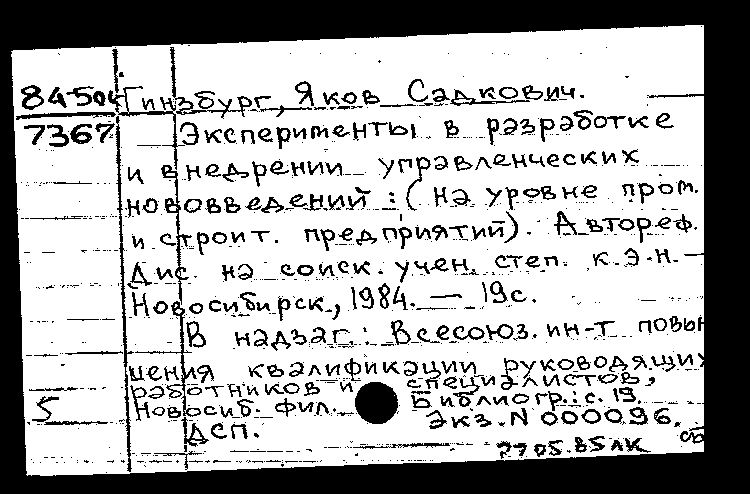 84-504 Гинзбург, Яков Садкович.
7367 Эксперименты в разработке
и внедрении управленческих
нововведений : ( на уровне пром.
и строит. предприятий). Автореф.
Дис. на соиск. учен. степ. к.э.н. —
Новосибирск, 1984. — 19с.
В надзаг.: Всесоюз. ин-т повы
шения квалификации руководящих
работников и специалистов,
5 Новосиб. фил. Библиогр.: с. 19.
ДСП. Экз. N 000096.
2705.85ЛК